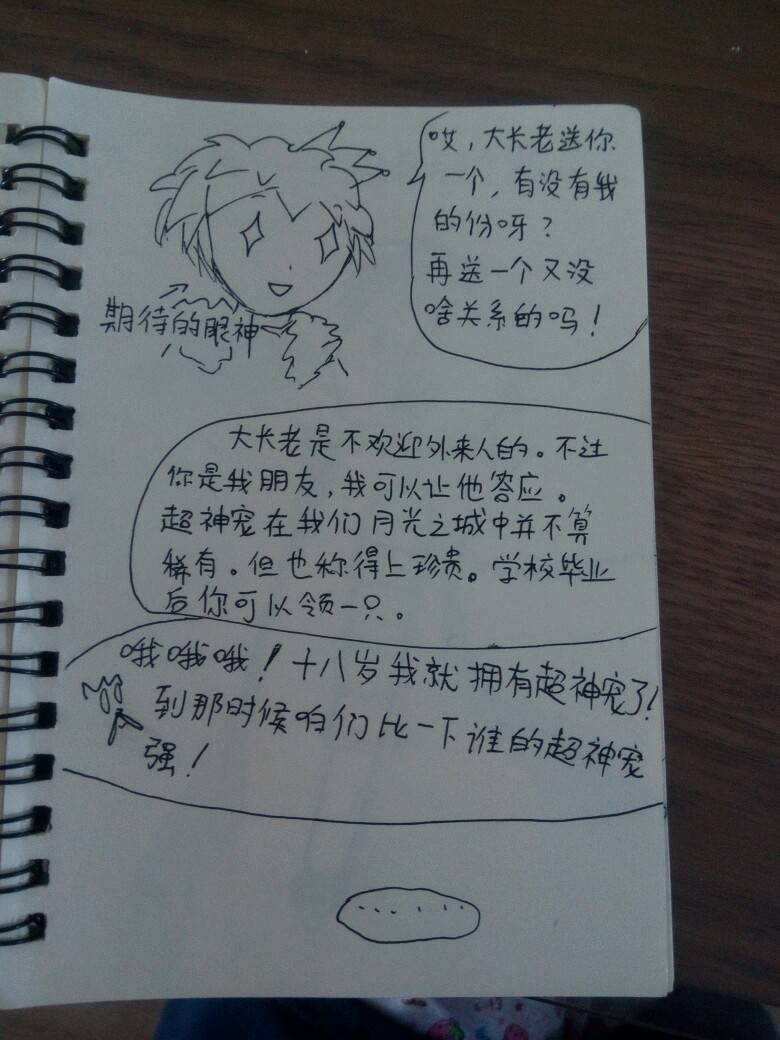 哎，大长老送你
一个，有没有我
的份呀？
再送一个又没
啥关系的吗！
期待的眼神
大长老是不欢迎外来人的。不过
你是我朋友，我可以让他答应。
超神宠在我们月光之城中并不算
稀有。但也称得上珍贵。学校毕业
后你可以领一只。
哦哦哦！十八岁我就拥有超神宠了！
到那时候咱们比一下谁的超神宠
强！
......